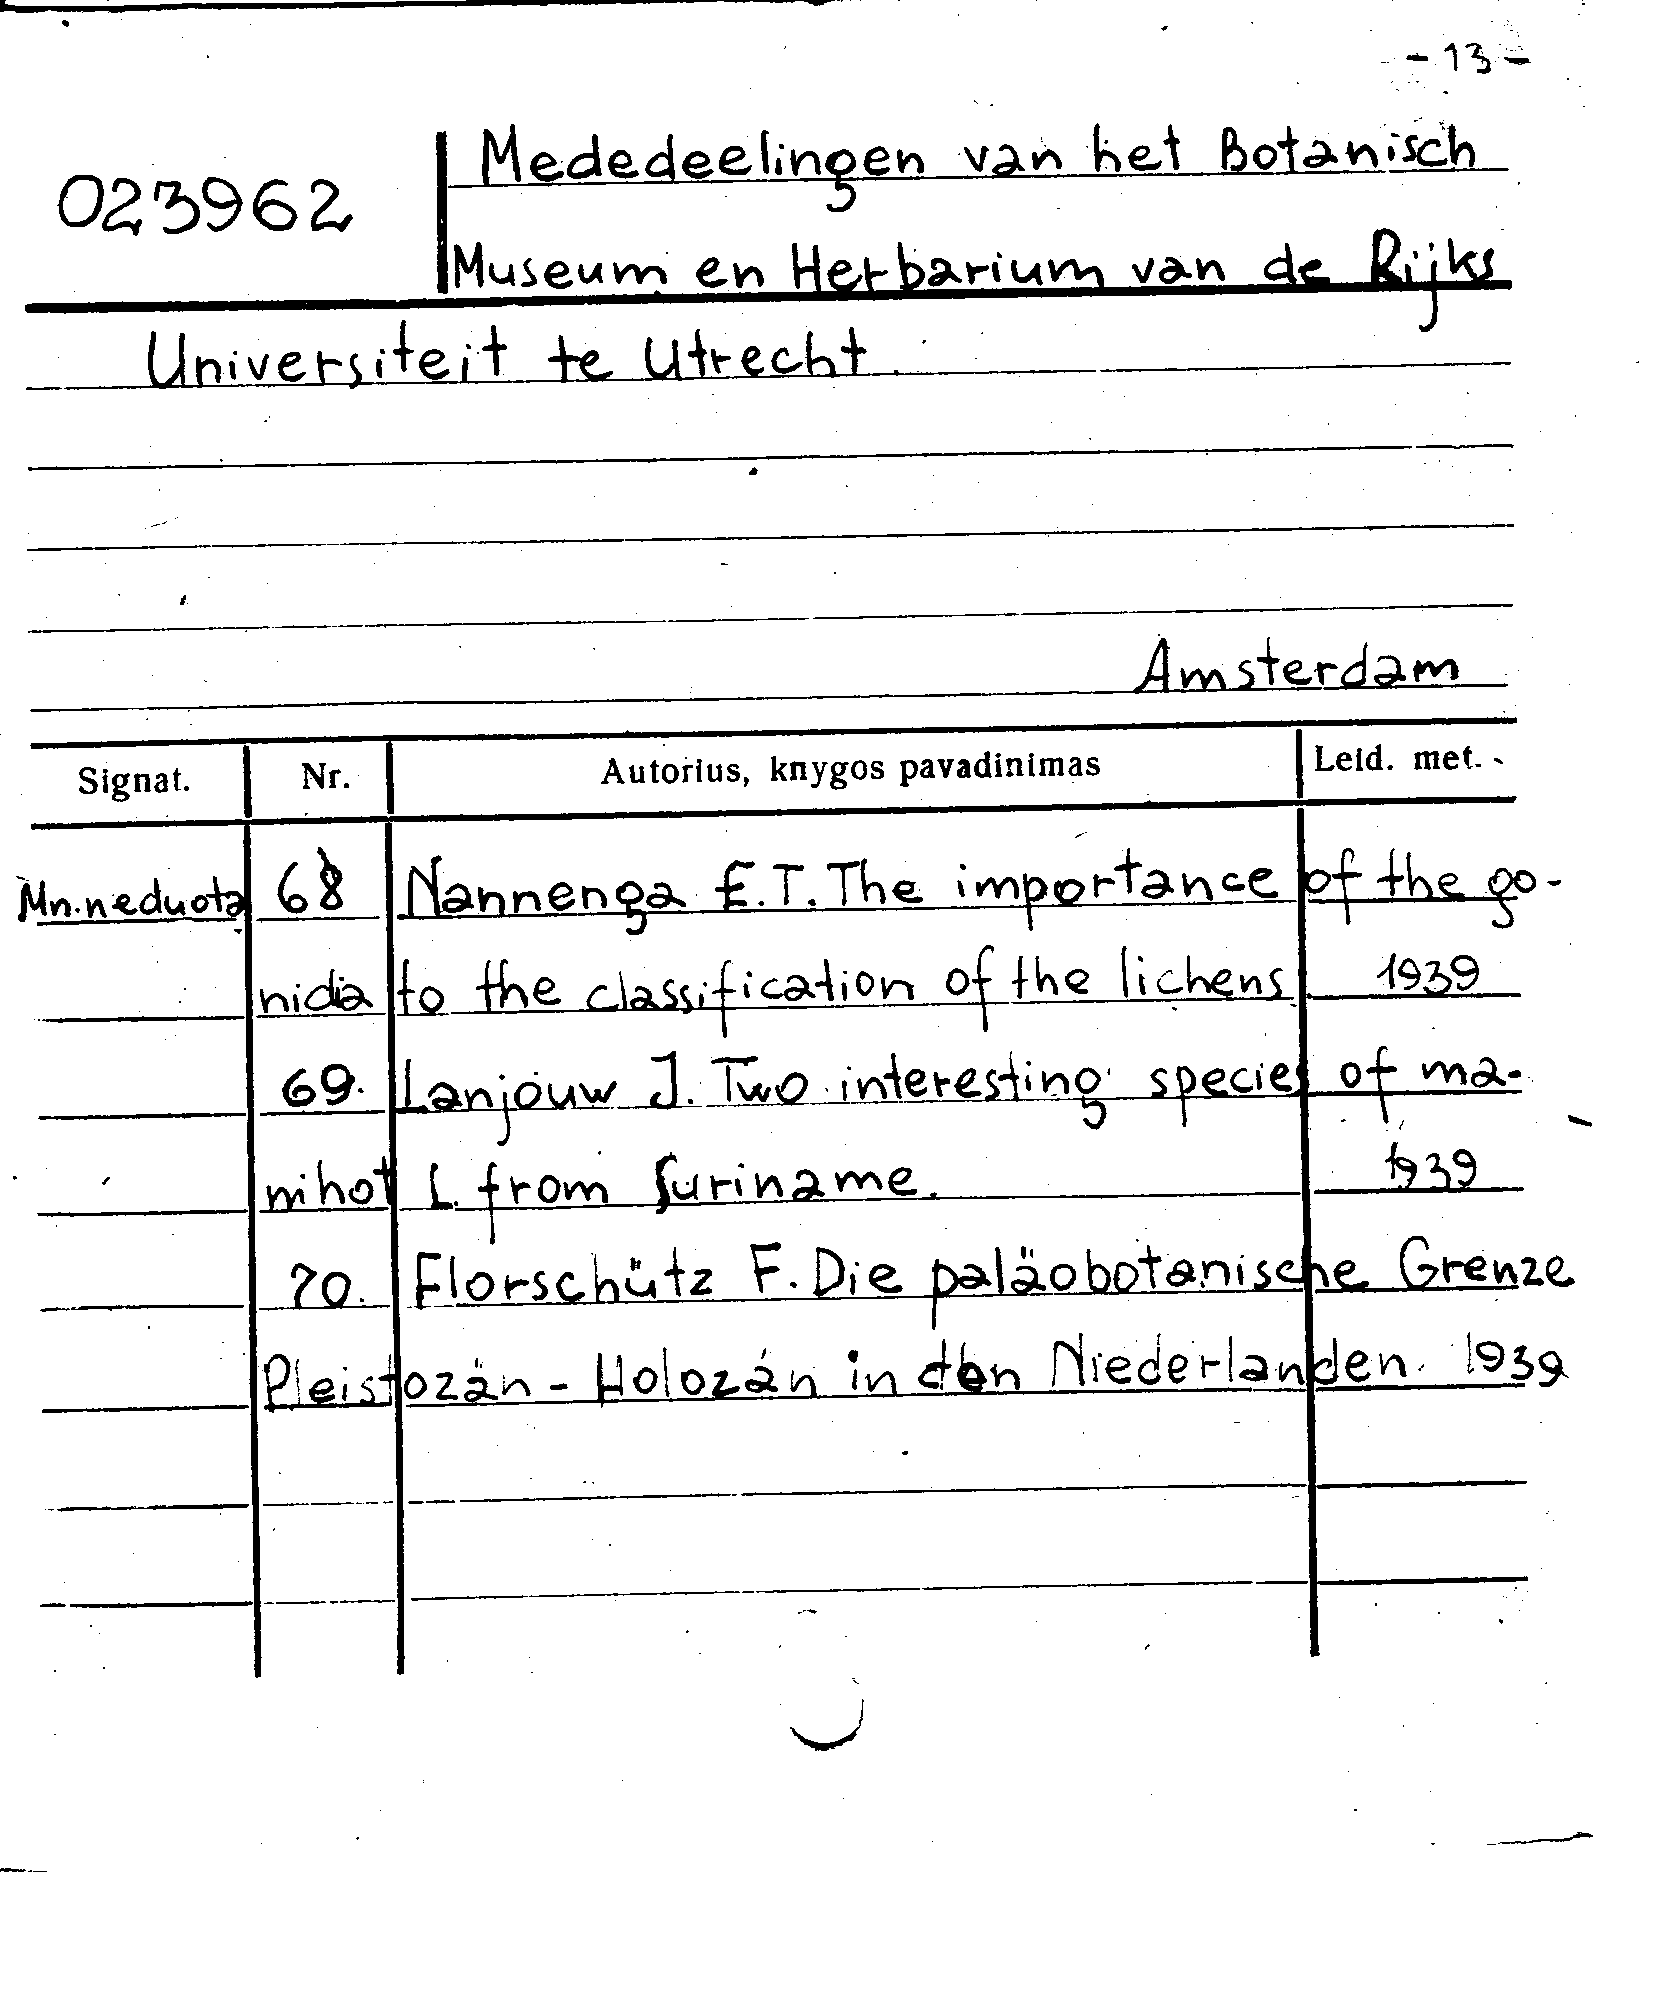 - 13 -
Mededeelingen van het Botanisch
023962
Museum en Herbarium van de Rijks
Universiteit te Utrecht
Amsterdam
Signat. Nr. Autorius, knygos pavadinimas Leid. met.
Mn. neduota 68 Nannenga E.T. The importance of the go-
nidia to the classification of the lichens 1939
69. Lanjouw J. Two interesting species of ma-
nihot L. from Suriname. 1939
70. Florschütz F. Die paläobotanische Grenze
Pleistozän - Holozän in den Niederlanden. 1939